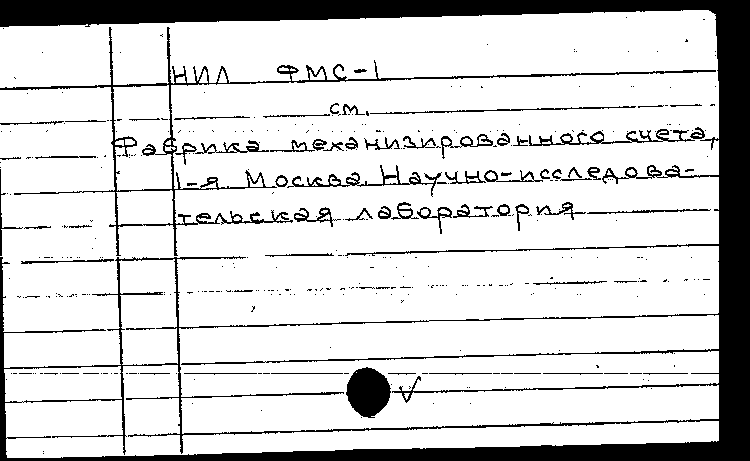 НИЛ ФМС-1
см.
Фабрика механизированного счета,
1-я Москва. Научно-исследова-
тельская лаборатория